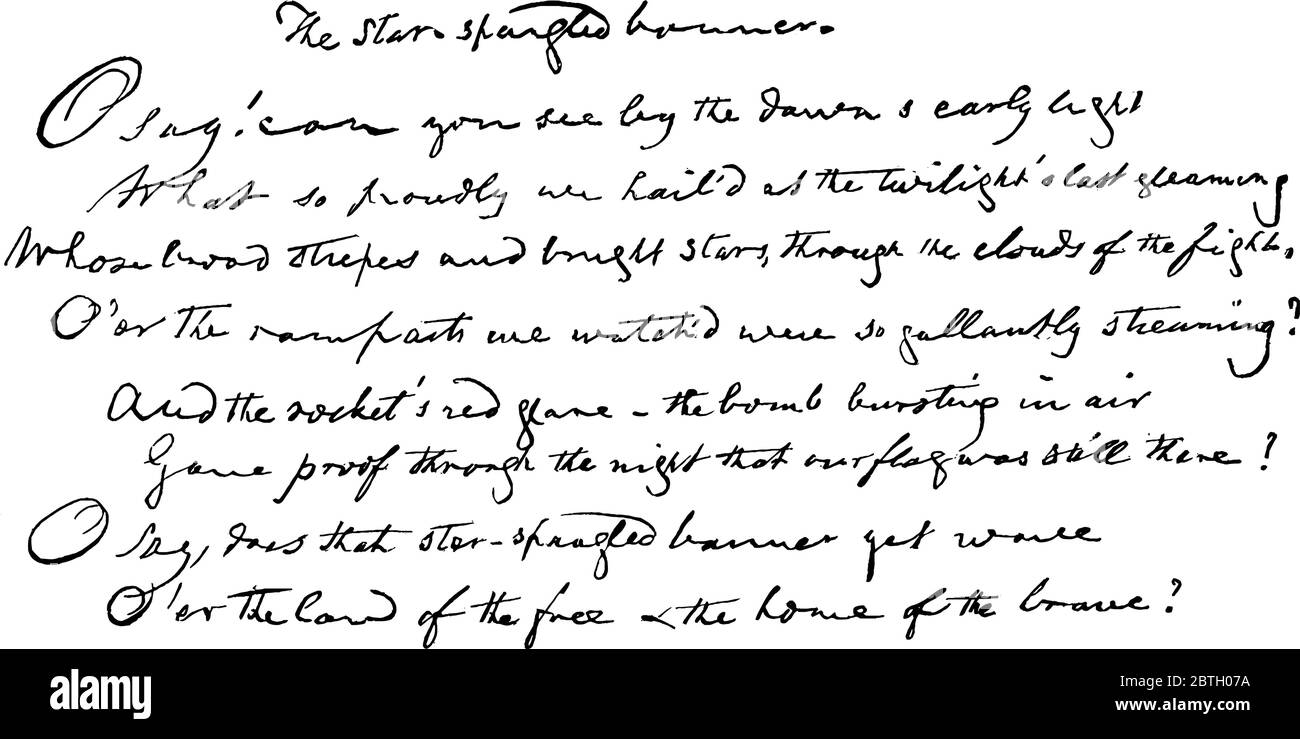 The star-spangled banner.
O say! can you see by the dawn s early light
What so proudly we hail'd at the twilight's last gleaming
Whose broad stripes and bright stars, through the clouds of the fight.
O'er the ramparts we watch'd were so gallantly streaming?
And the rocket's red glare - the bomb bursting in air
Gave proof through the night that our flag was still there?
O say, does that star-spangled banner yet wave
O'er the land of the free & the home of the brave?
a
alamy
a
a
a
alamy
Image ID: 2BTH07A
www.alamy.com